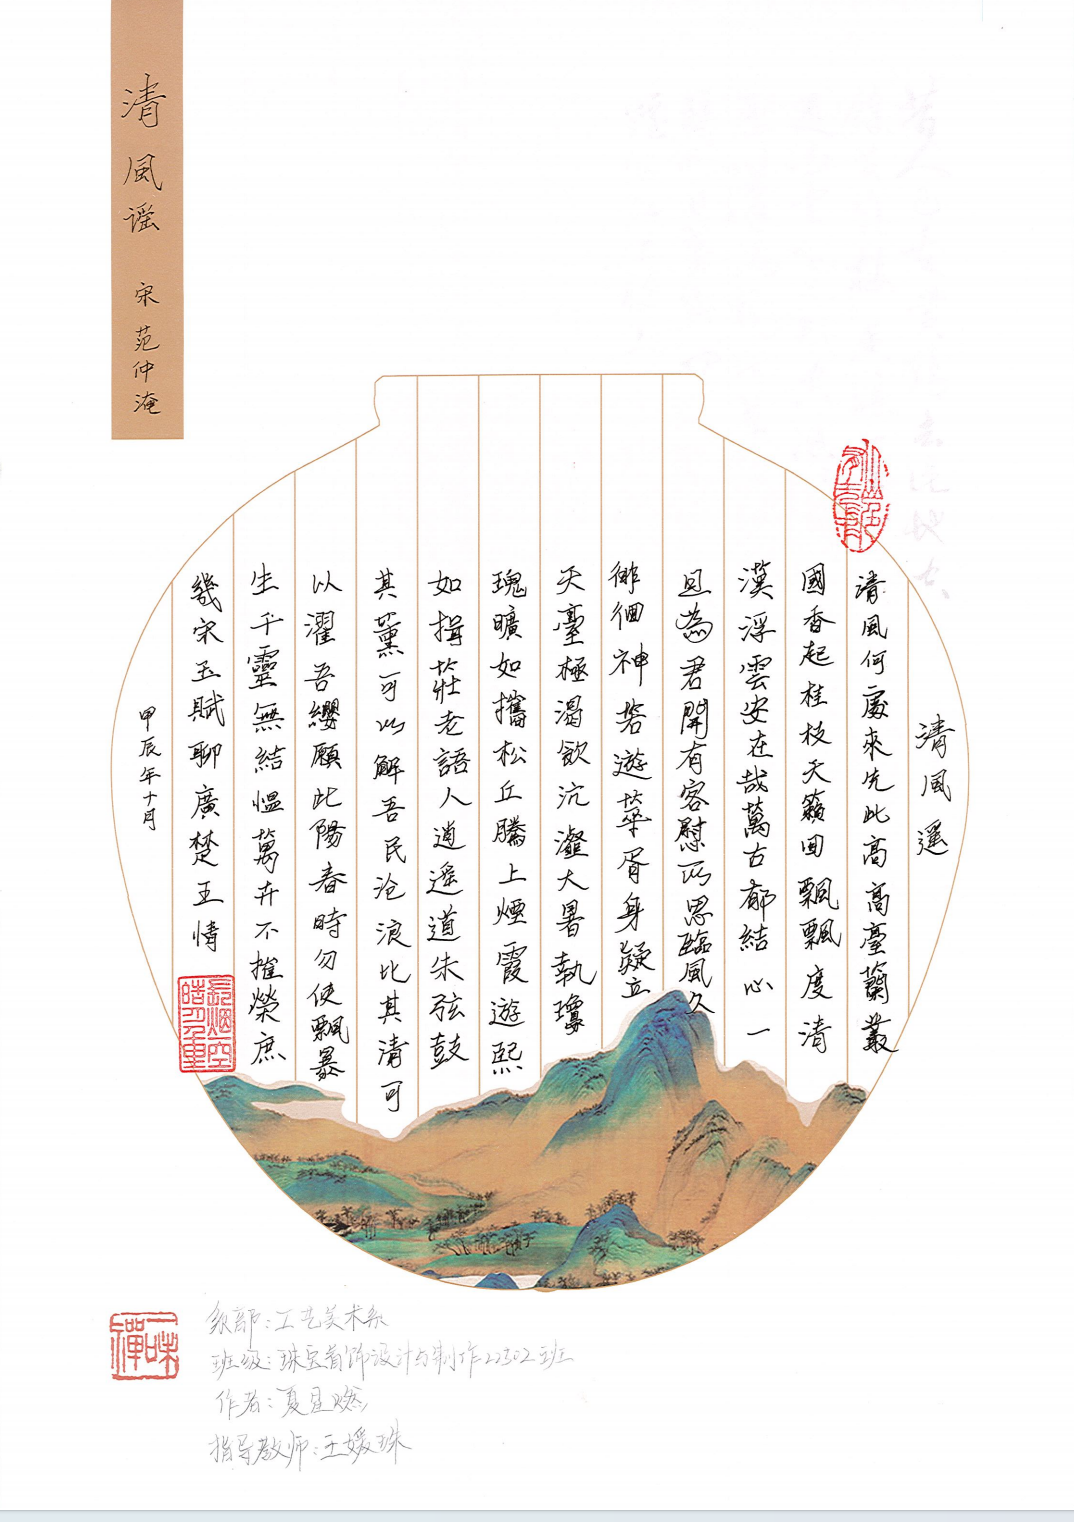 清風谣 宋 范仲淹
清風遥
清風何處來先此高高臺蘭叢
國香起桂枝天籟回飄飄度清
漢浮雲安在哉萬古郁結心一
旦為君開有客慰所思臨風久
徘徊神若遊華胥身疑立
天臺極渴飲沆瀣大暑執瓊
瑰曠如攜松丘騰上煙霞遊熙
如揖莊老語人逍遙道朱弦鼓
其薰可以解吾民沧浪比其清可
以濯吾纓願此陽春時勿使飄暴
生千靈無結愠萬卉不摧榮庶
幾宋玉賦聊廣楚王情
甲辰年十月
系部:工艺美术系
班级:珠宝首饰设计与制作22302班
作者:夏星燃
指导教师:王媛珠